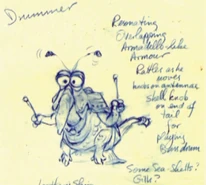 Drummer
Resonating
Overlapping
Armadillo-like
Armour
Rattles as he
moves
knobs on antennae
shell knob
on end of
tail
for
playing
Bass drum
Some Sea-shells?
Gills?